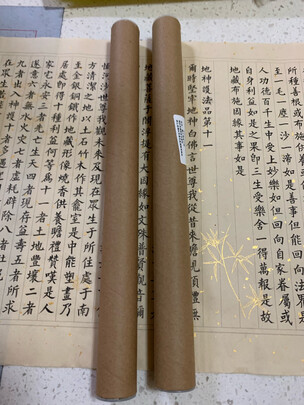 所種善根或布施供
一毛一塵一沙一渧如是善事但能回向法界是
人功德百千生中受上妙樂如但回向自家眷屬或
自身利益如是之果即三生受樂捨一得萬報是故
地藏布施因緣其事如是
地神護法品第十一
爾時堅牢地神白佛言世尊我從昔來瞻視頂禮無
地藏菩薩於閻浮提有大因緣如文殊普賢觀音彌
沙世尊我觀未來及現在眾生於所住處於南
方清潔之地以土石竹木作其龕室是中能塑畫乃
至金銀銅鐵作地藏形像燒香供養瞻禮讚嘆是人
居處即得十種利益何等為十一者土地豐壤二者
家宅永安三者先亡生天四者現存益壽五者所求
遂意六者無水火災七者虛耗辟除八者杜
九者出入神護十者多遇聖
在眾生